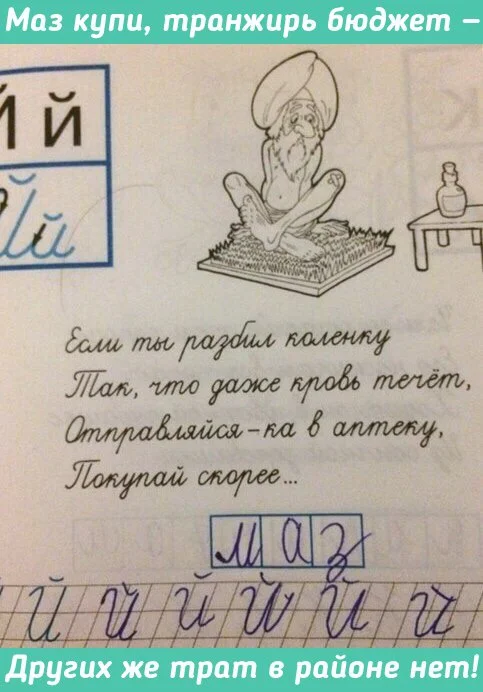 Маз купи, транжирь бюджет –
Й й
Й й
Если ты разбил коленку
Так, что даже кровь течёт,
Отправляйся-ка в аптеку,
Покупай скорее...
маз
й й й й й й
Других же трат в районе нет!